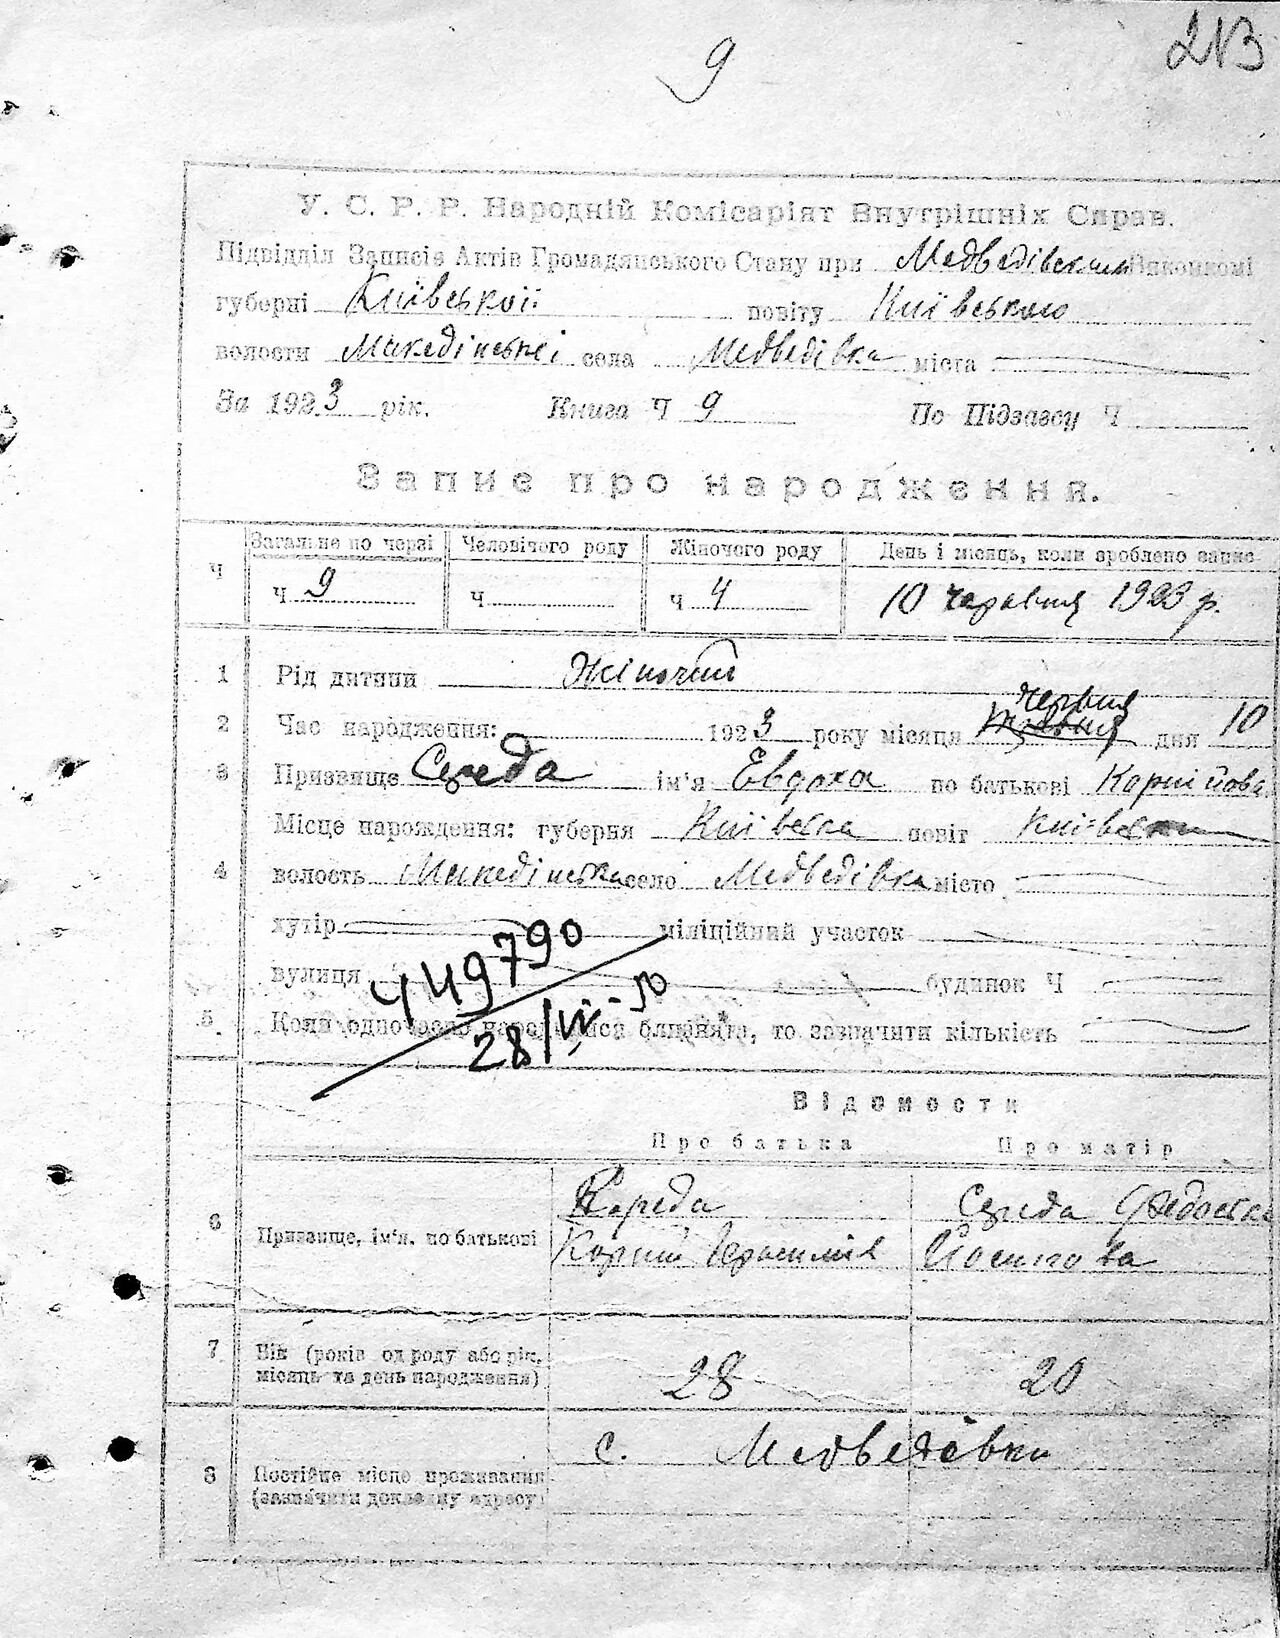 9
213
У. С. Р. Р. Народній Комісаріят Внутрішніх Справ.
Підвідділ Записів Актів Громадянського Стану при Медведівськім Виконкомі
губерні Київської повіту Київського
волости Македінські села Медведівка міста
За 1923 рік. Книга Ч 9 По Підзагсу Ч
Запис про народження.
Ч Загальне по черзі Человічого роду Жіночого роду День і місяць, коли зроблено запис
Ч 9 Ч Ч 4 10 червня 1923 р.
1 Рід дитини Жіночий
червня
2 Час народження: 1923 року місяця травня дня 10
3 Призвище Середа ім'я Евдоха по батькові Корнійова
Місце нарождення: губерня Київська повіт Київськ
4 волость Македінська село Медведівка місто
хутір міліційний участок
вулиця будинок Ч
449790
28/VI-50
5 Коли одночасно народилися близнята, то зазначити кількість
Відомости
Про батька Про матір
6 Призвище, ім'я, по батькові
Середа Середа Федоська
Корній Герасимів Йосипова
7 Вік (років од роду або рік, місяць та день народження) 28 20
8 Постійне місце проживання (зазначити докладну адресу) с. Медведівка